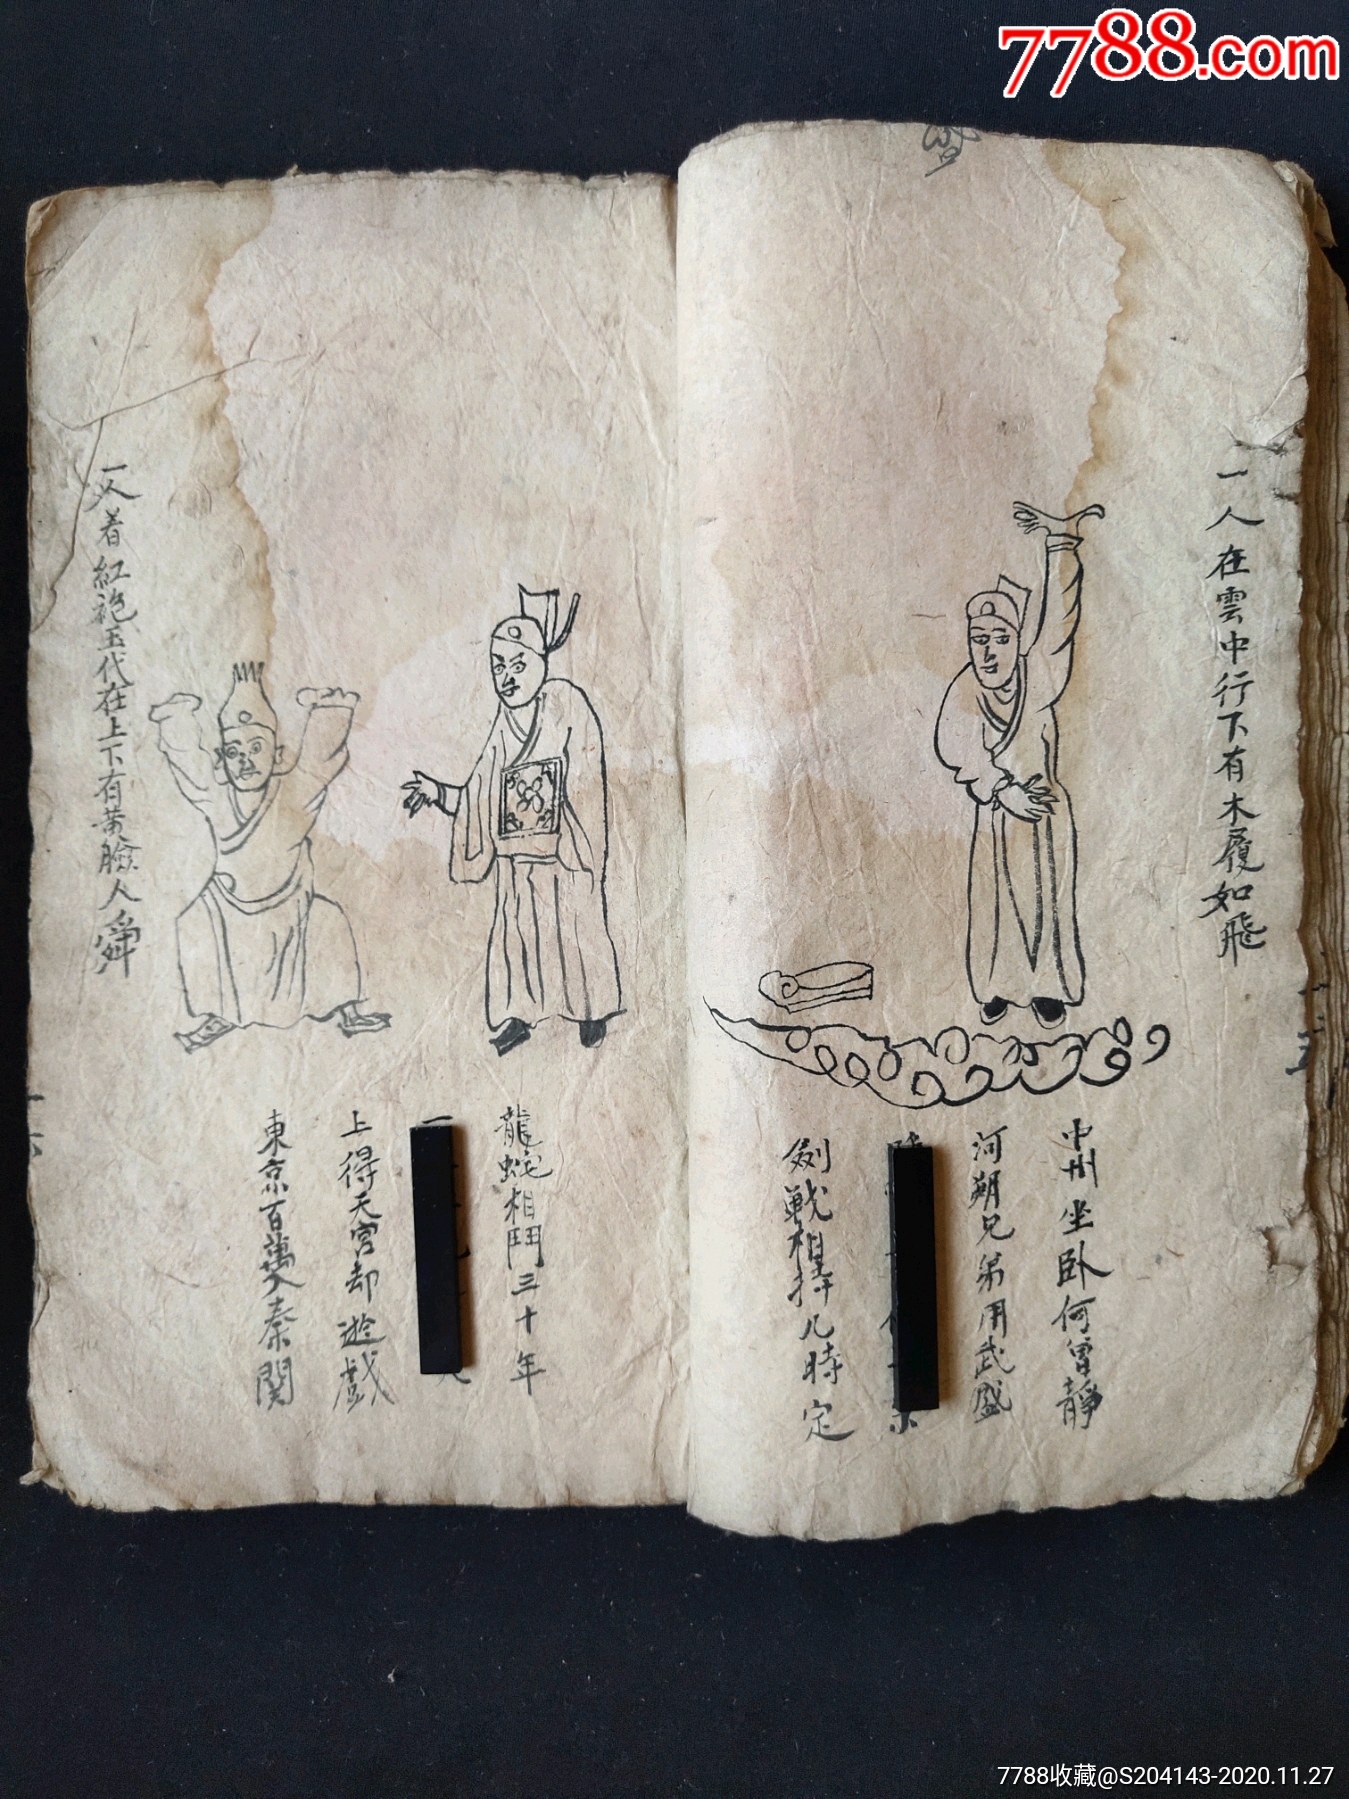 7788.com
一人在雲中行下有木履如飛
中州坐卧何曾靜
河朔兄弟用武盛
劍戟相持几時定
一人着紅袍玉代在上下有黄臉人舞
龍蛇相鬥三十年
一
上得天宮却遊戲
東京百萬入秦関
7788收藏@S204143-2020.11.27